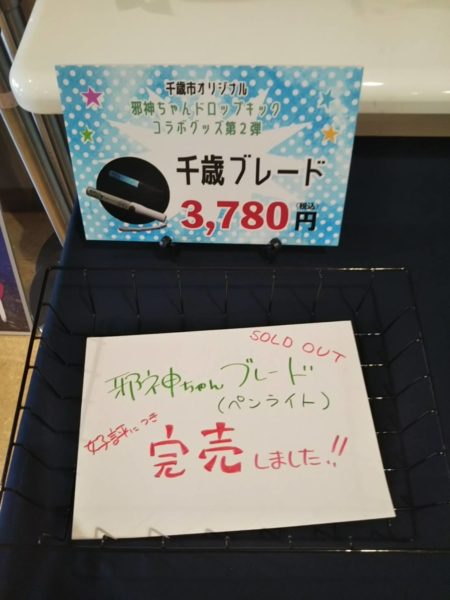 千歳市オリジナル
邪神ちゃんドロップキック
コラボグッズ第2弾
千歳ブレード
3,780円(税込)
SOLD OUT
邪神ちゃんブレード
(ペンライト)
好評につき
完売しました!!